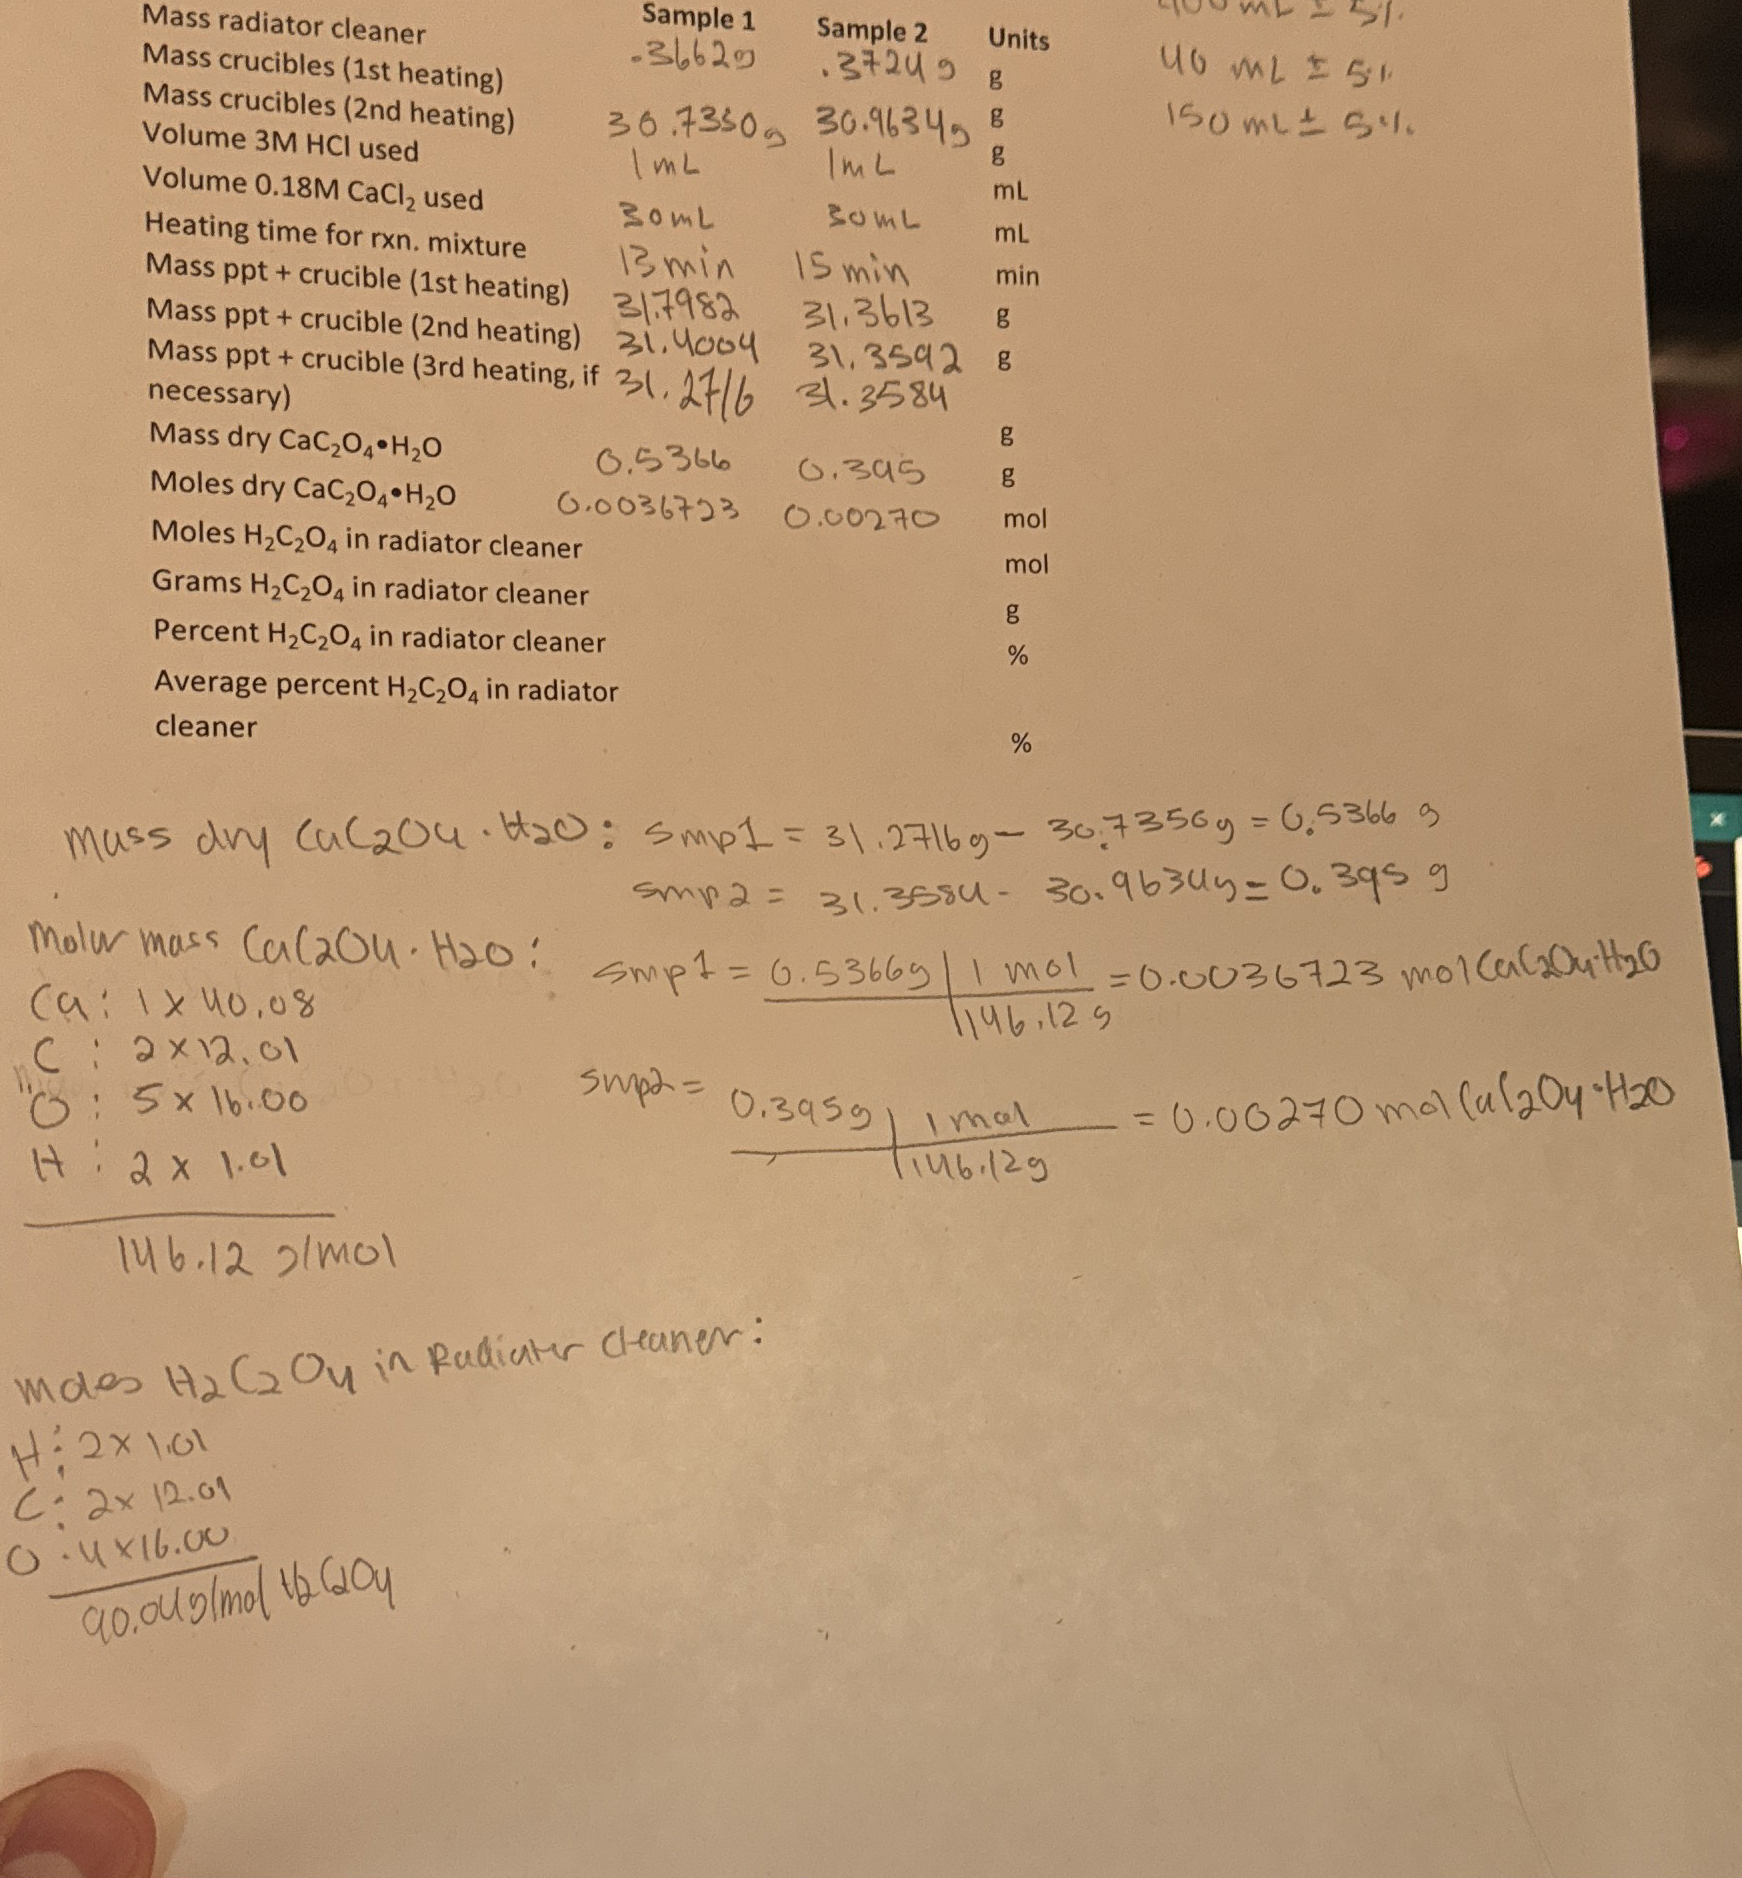 Mass radiator cleaner Sample 1 Sample 2 Units 400 mL ± 5%
Mass crucibles (1st heating) .3662g .3724g g 40 mL ± 5%
Mass crucibles (2nd heating) 30.7350g 30.9634g g 150 mL ± 5%
Volume 3M HCl used 1mL 1mL g
Volume 0.18M CaCl₂ used 30mL 30mL mL
Heating time for rxn. mixture 13min 15min mL
Mass ppt + crucible (1st heating) 31.7982 31.3613 min
Mass ppt + crucible (2nd heating) 31.4004 31.3592 g
Mass ppt + crucible (3rd heating, if 31.2716 31.3584 g
necessary)
Mass dry CaC₂O₄•H₂O 0.5366 0.395 g
Moles dry CaC₂O₄•H₂O 0.0036723 0.00270 g
Moles H₂C₂O₄ in radiator cleaner mol
Grams H₂C₂O₄ in radiator cleaner mol
Percent H₂C₂O₄ in radiator cleaner g
Average percent H₂C₂O₄ in radiator %
cleaner %
mass dry CaC2O4 · H2O: smp1 = 31.2716g - 30.7350g = 0.5366 g
smp2 = 31.3584 - 30.9634g = 0.395 g
Molar mass CaC2O4 · H2O:
Ca: 1 x 40.08
C : 2 x 12.01
O : 5 x 16.00
H : 2 x 1.01
146.12 g/mol
smp1 = 0.5366g | 1 mol = 0.0036723 mol CaC2O4·H2O
146.12 g
smp2 = 0.395g | 1 mol = 0.00270 mol CaC2O4·H2O
146.12g
moles H2C2O4 in Radiator cleaner:
H: 2 x 1.01
C: 2 x 12.01
O : 4 x 16.00
90.04g/mol H2C2O4